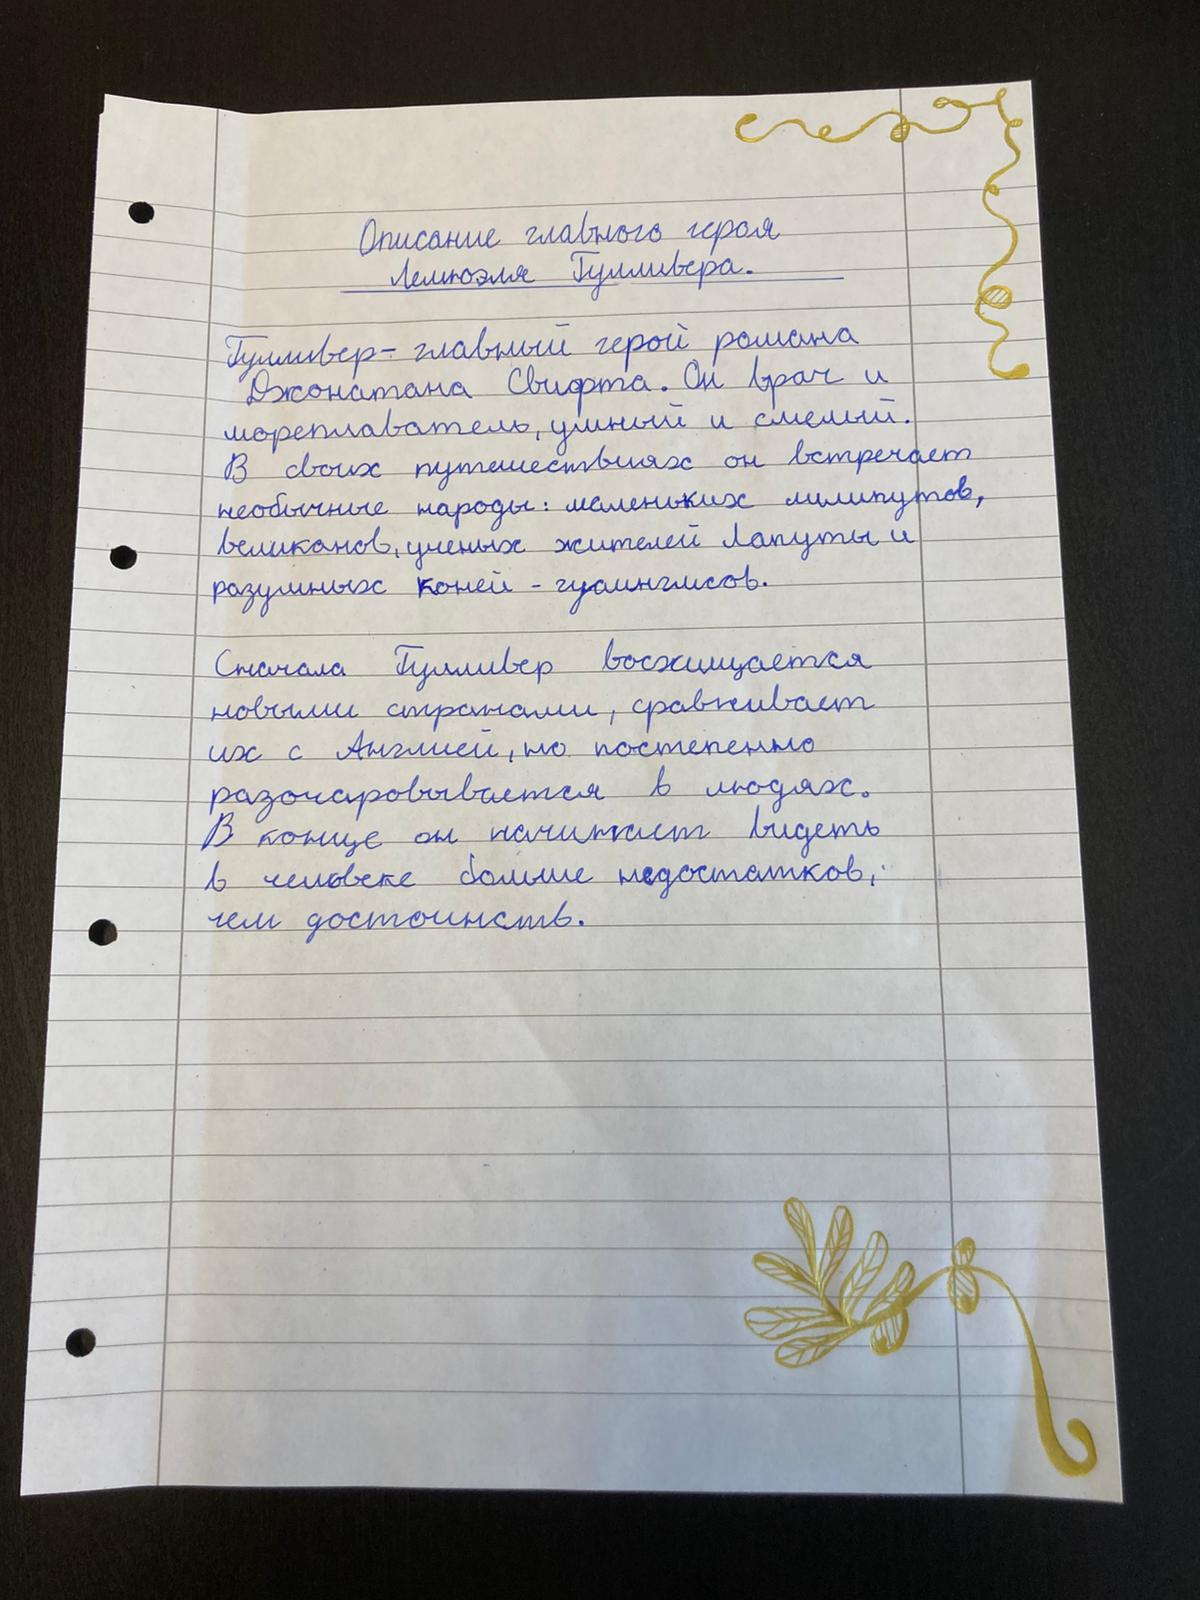 Описание главного героя
Лемюэля Гулливера.
Гулливер - главный герой романа
Джонатана Свифта. Он врач и
мореплаватель, умный и смелый.
В своих путешествиях он встречает
необычные народы: маленьких лилипутов,
великанов, ученых жителей Лапуты и
разумных коней - гуингмсов.
Сначала Гулливер восхищается
новыми странами, сравнивает
их с Англией, но постепенно
разочаровывается в людях.
В конце он начинает видеть
в человеке больше недостатков,
чем достоинств.